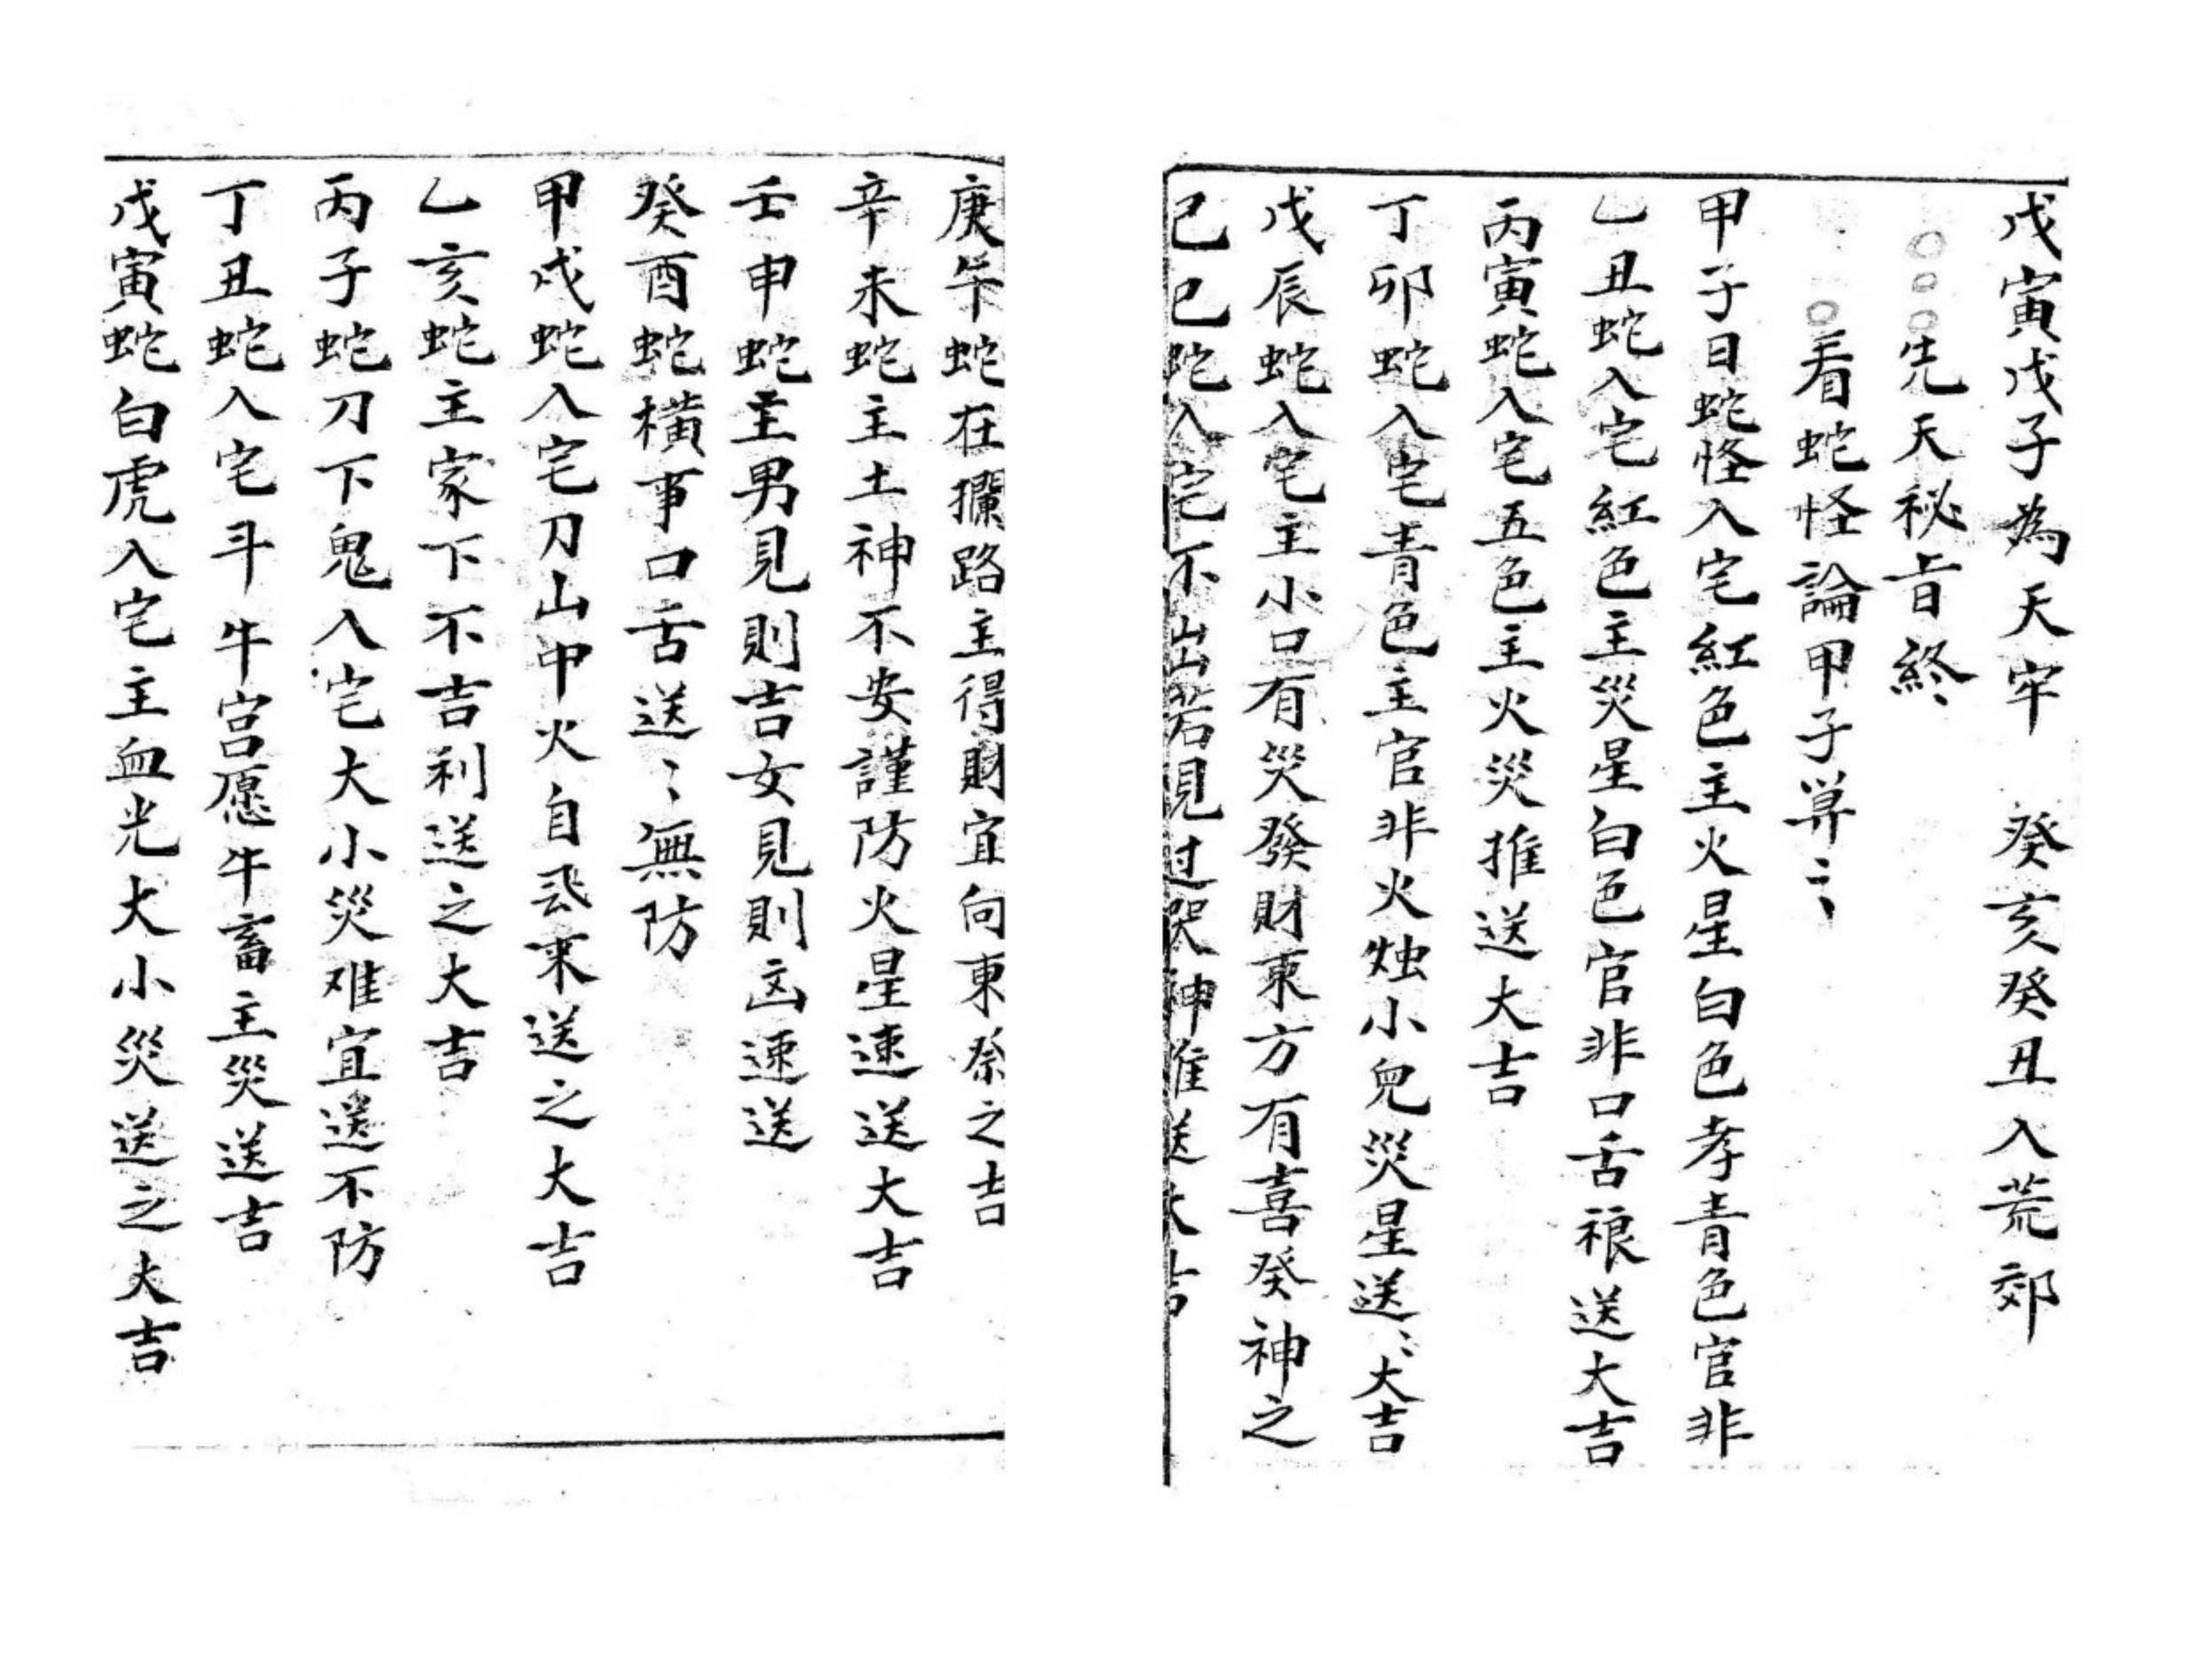 戊寅戊子為天牢　癸亥癸丑入荒郊
○○○先天秘旨終
○看蛇怪論甲子算〻
甲子日蛇怪入宅紅色主火星白色孝青色官非
乙丑蛇入宅紅色主災星白色官非口舌裉送大吉
丙寅蛇入宅五色主火災推送大吉
丁卯蛇入宅青色主官非火烛小兒災星送〻大吉
戊辰蛇入宅主小口有災發財東方有喜癸神之
己巳蛇入宅不出若見过哭神推送大吉
庚午蛇在攔路主得財宜向東祭之吉
辛未蛇主土神不安謹防火星速送大吉
壬申蛇主男見則吉女見則凶速送
癸酉蛇橫事口舌送〻無防
甲戌蛇入宅刀山中火自飛来送之大吉
乙亥蛇主家下不吉利送之大吉
丙子蛇刀下鬼入宅大小災难宜送不防
丁丑蛇入宅斗牛宫愿牛畜主災送吉
戊寅蛇白虎入宅主血光大小災送之大吉